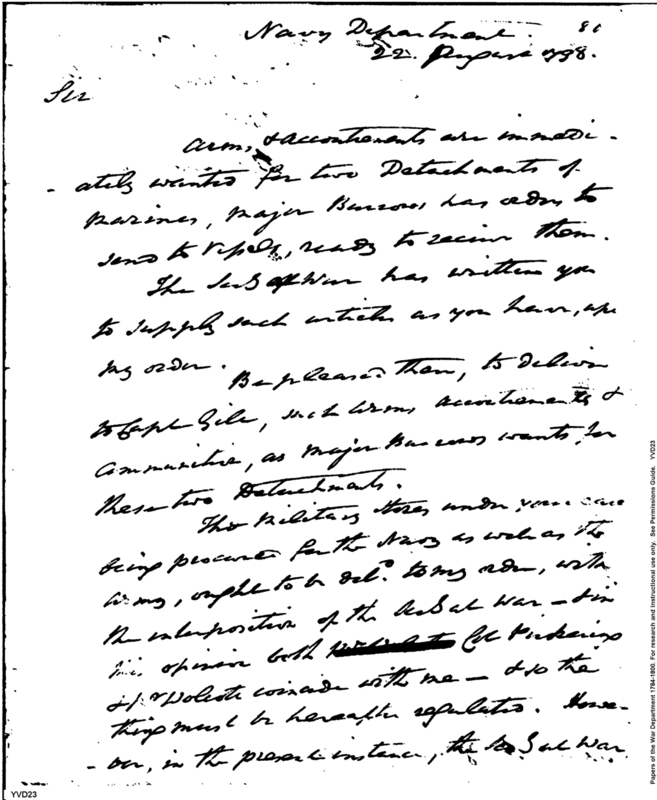 Navy Department.
22. August 1798.
Sir
Arms, & accoutrements are immedi-
- ately wanted for two Detachments of
Marines, Major Burrows has orders to
send to Vessels, ready to receive them.
The Sec of War has written you
to supply such articles as you have, upon
my order.
Be pleased then, to deliver
to Capt Gile, such Arms accoutrements &
ammunition, as Major Burrows wants for
these two Detachments.
The Military Stores under your care
being procured for the Navy as well as the
Army, ought to be deld. to my order, with
the interposition of the at War - & in
this opinion both Col Pickering
& Mr Wolcott coincide with me - & so the
thing must be hereafter regulated. Howe-
- ver, in the present instance, the Sec at War
YVD23
Papers of the War Department 1784-1800. For research and instructional use only. See Permissions Guide. YVD23